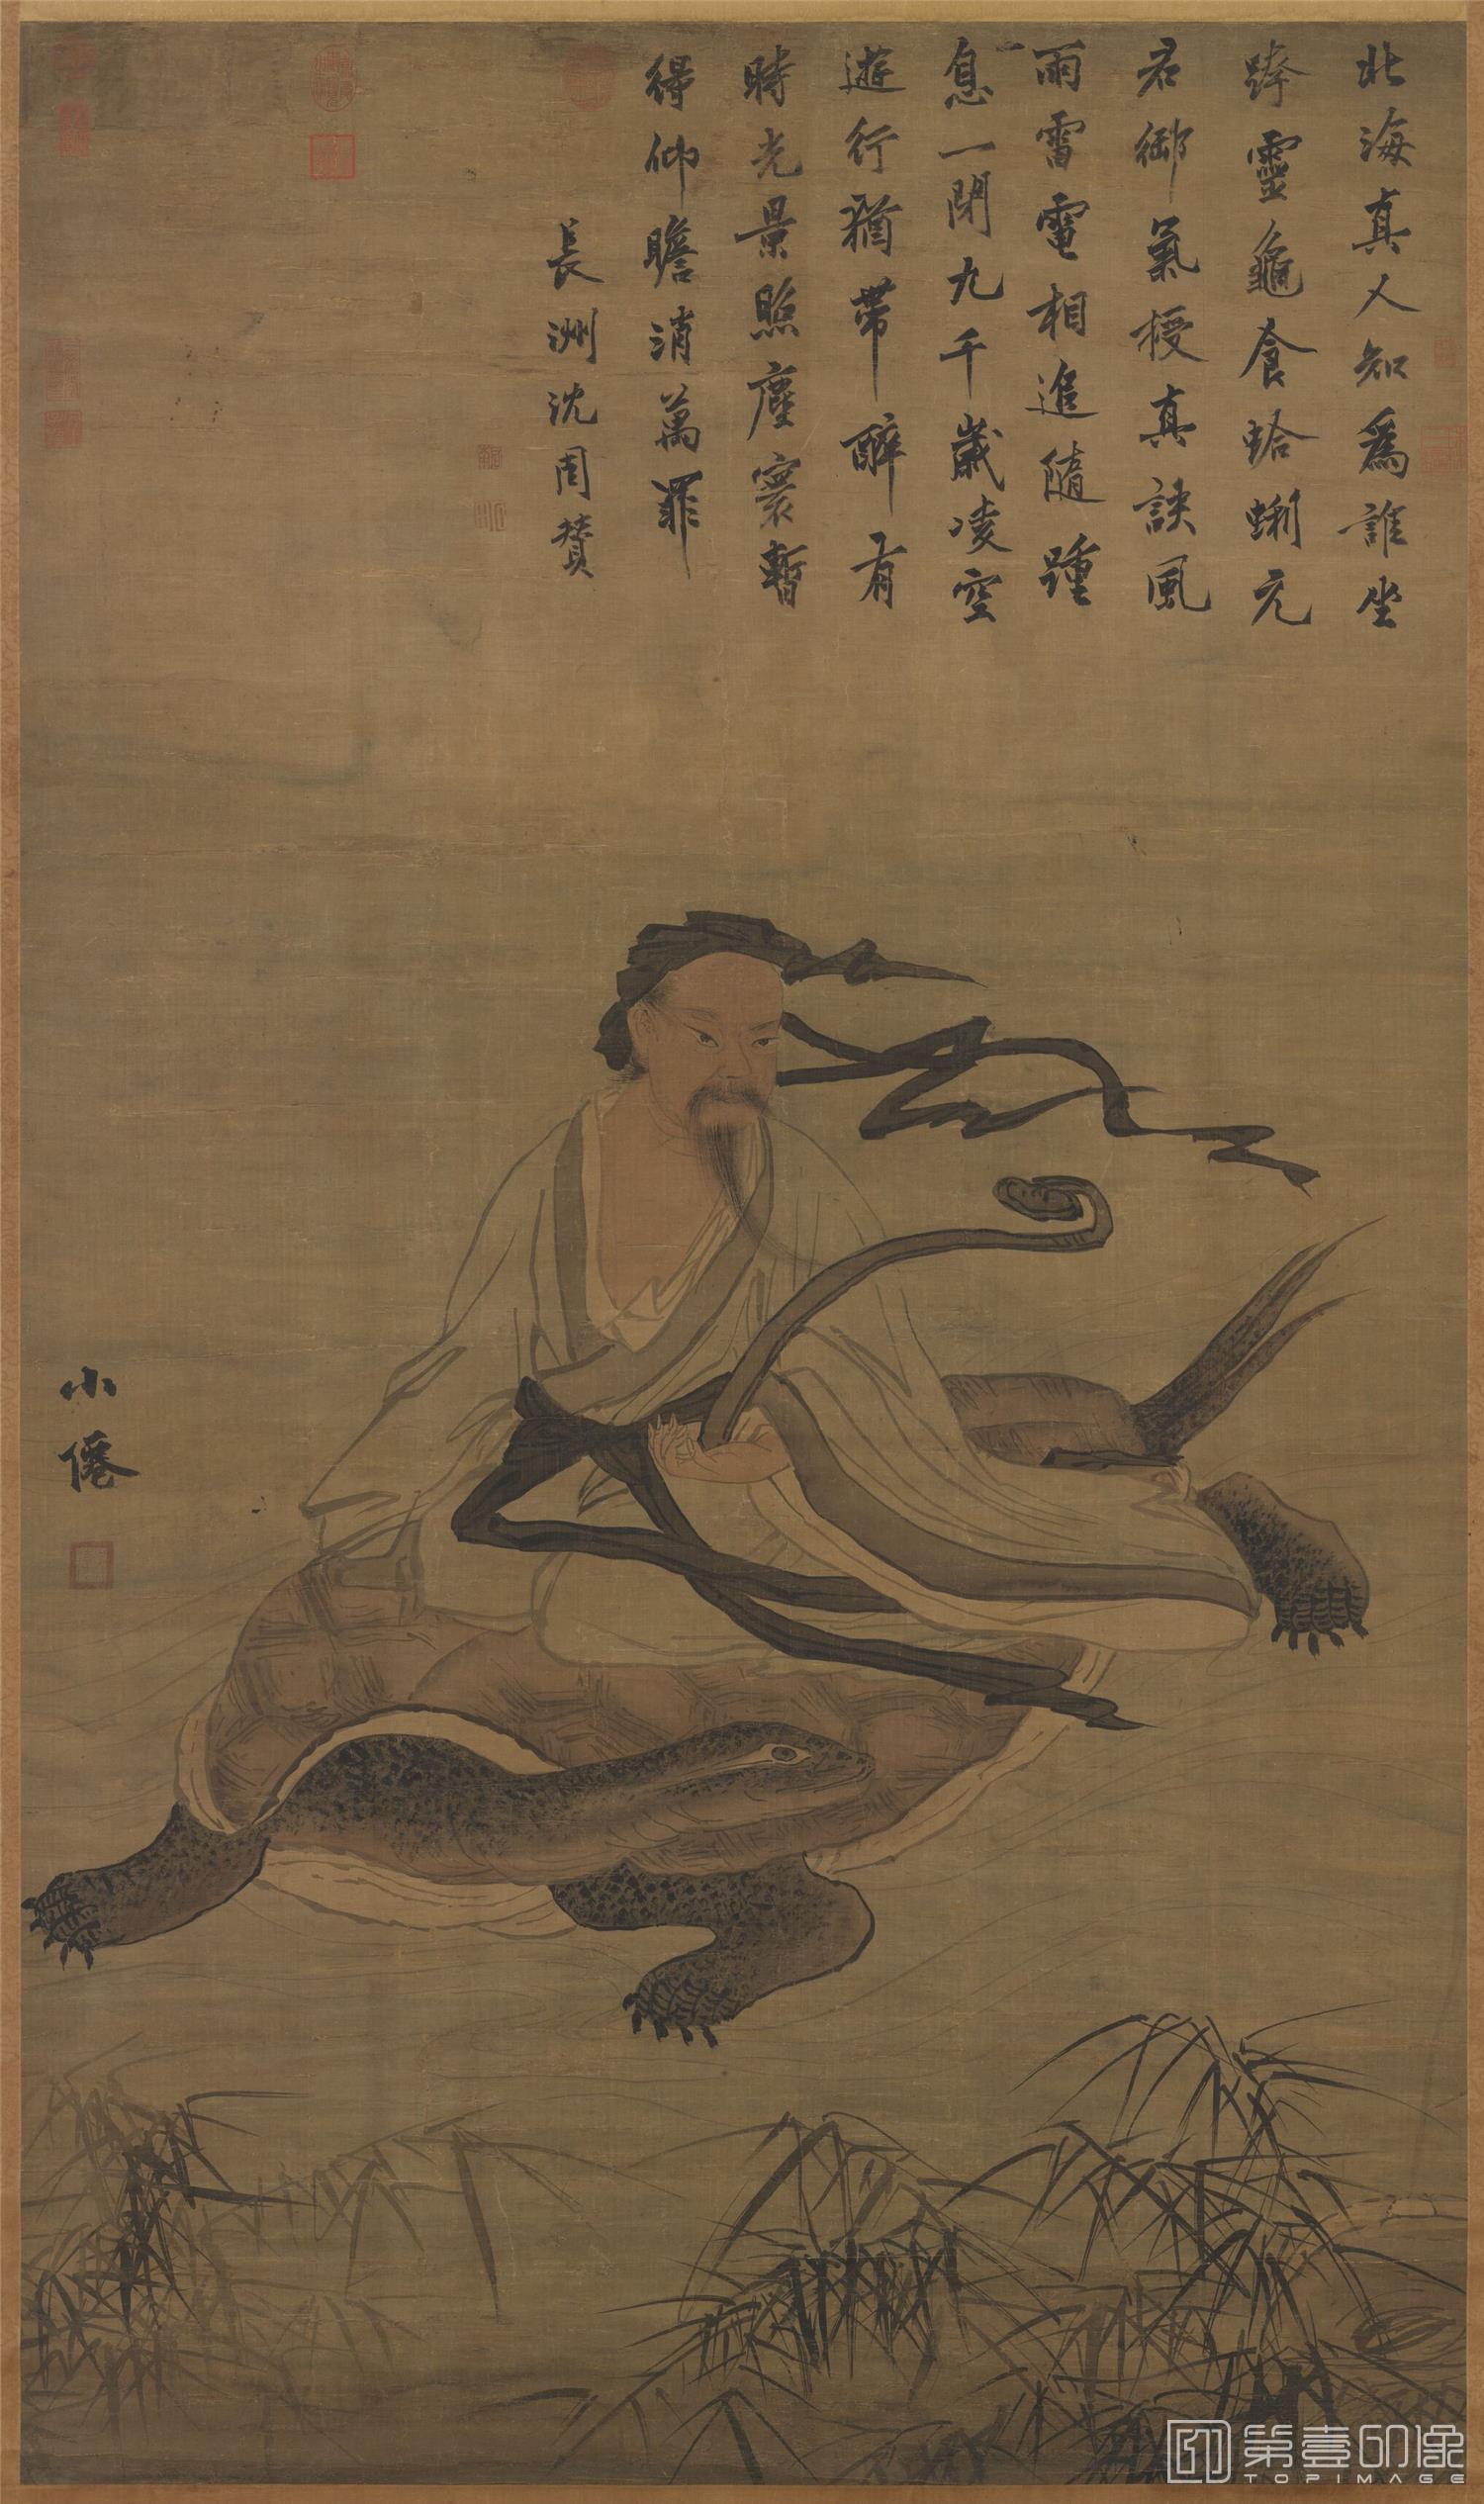 北海真人知為誰坐
跨靈龜食蛤蜊元
君御氣授真訣風
雨雷電相追隨踵
息一閉九千歲凌空
遊行猶帶醉有
時光景照塵寰暫
得仰瞻消萬罪
長洲沈周贊
小僊
第壹印像
TOPIMAGE